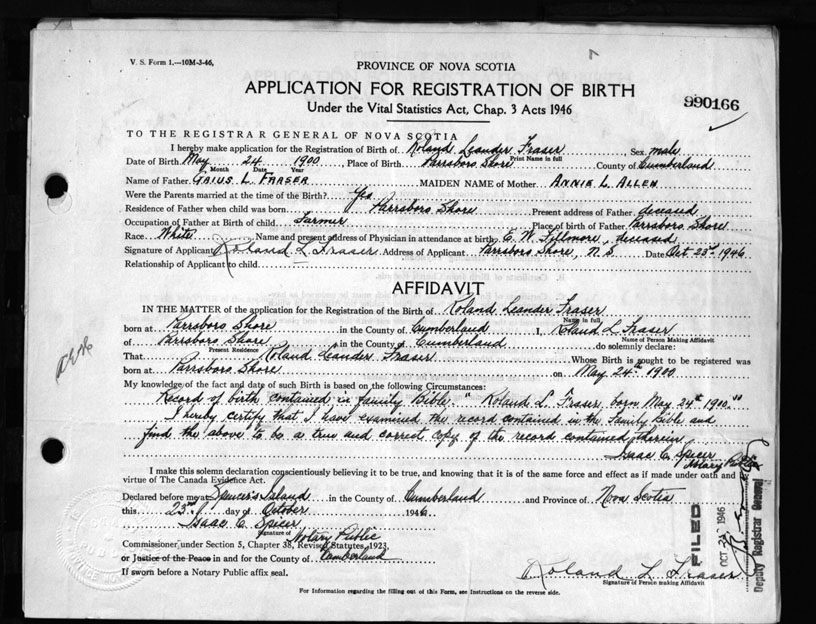 V. S. Form 1.—10M-3-46.
PROVINCE OF NOVA SCOTIA
APPLICATION FOR REGISTRATION OF BIRTH
Under the Vital Statistics Act, Chap. 3 Acts 1946
990166
TO THE REGISTRAR GENERAL OF NOVA SCOTIA
I hereby make application for the Registration of Birth of Roland Leander Fraser Sex male
Print Name in full
Date of Birth May 24 1900 Place of Birth Parrsboro Shore County of Cumberland
Month Date Year
Name of Father GAIUS L FRASER MAIDEN NAME of Mother ANNIE L. ALLEN
Were the Parents married at the time of the Birth? Yes
Residence of Father when child was born Parrsboro Shore Present address of Father deceased
Occupation of Father at Birth of child Farmer Place of birth of Father Parrsboro Shore
Race White Name and present address of Physician in attendance at birth E. W. Fillmore, deceased
Signature of Applicant Roland L Fraser Address of Applicant Parrsboro Shore, N. S. Date Oct 23rd 1946
Relationship of Applicant to child
AFFIDAVIT
IN THE MATTER of the application for the Registration of the Birth of Roland Leander Fraser
Name in full
born at Parrsboro Shore in the County of Cumberland I, Roland L Fraser
Name of Person Making Affidavit
of Parrsboro Shore in the County of Cumberland do solemnly declare:
Present Residence
That Roland Leander Fraser Whose Birth is sought to be registered was
born at Parrsboro Shore on May 24th 1900
My knowledge of the fact and date of such Birth is based on the following Circumstances:
Record of birth contained in family Bible. "Roland L Fraser, born May 24th 1900."
I hereby certify that I have examined the record contained in the Family Bible and
find the above to be a true and correct copy of the record contained therein
Isaac C. Spicer
Notary Public
I make this solemn declaration conscientiously believing it to be true, and knowing that it is of the same force and effect as if made under oath and
virtue of The Canada Evidence Act.
Declared before me at Spencer's Island in the County of Cumberland and Province of Nova Scotia
this 23rd day of October 1946
Isaac C. Spicer
Signature of
Notary Public
Commissioner under Section 5, Chapter 38, Revised Statutes, 1923
or Justice of the Peace in and for the County of Cumberland
If sworn before a Notary Public affix seal.
Roland L. Fraser
Signature of Person making Affidavit
FILED
OCT 24 1946
Deputy Registrar General
For Information regarding the filling out of this Form, see Instructions on the reverse side.